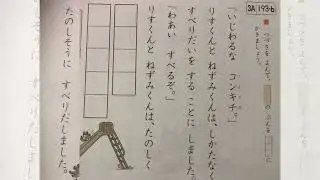 3A 193-b
つづきを よんで、 の ぶんを に
かきましょう。
「いじわるな コンキチ。」
りすくんと ねずみくんは、しかたなく
すべりだいを する ことに しました。
「わあい すべるぞ。」
りすくんと ねずみくんは、たのしく
たのしそうに すべりだしました。